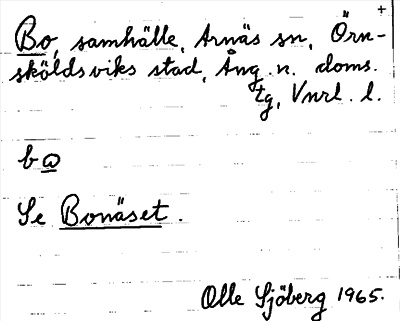 +
Bo, samhälle, Arnäs sn, Örn-
sköldsviks stad, Ång. n. doms.
tg, Vnrl. l.
bω
Se Bonäset.
Olle Sjöberg 1965.